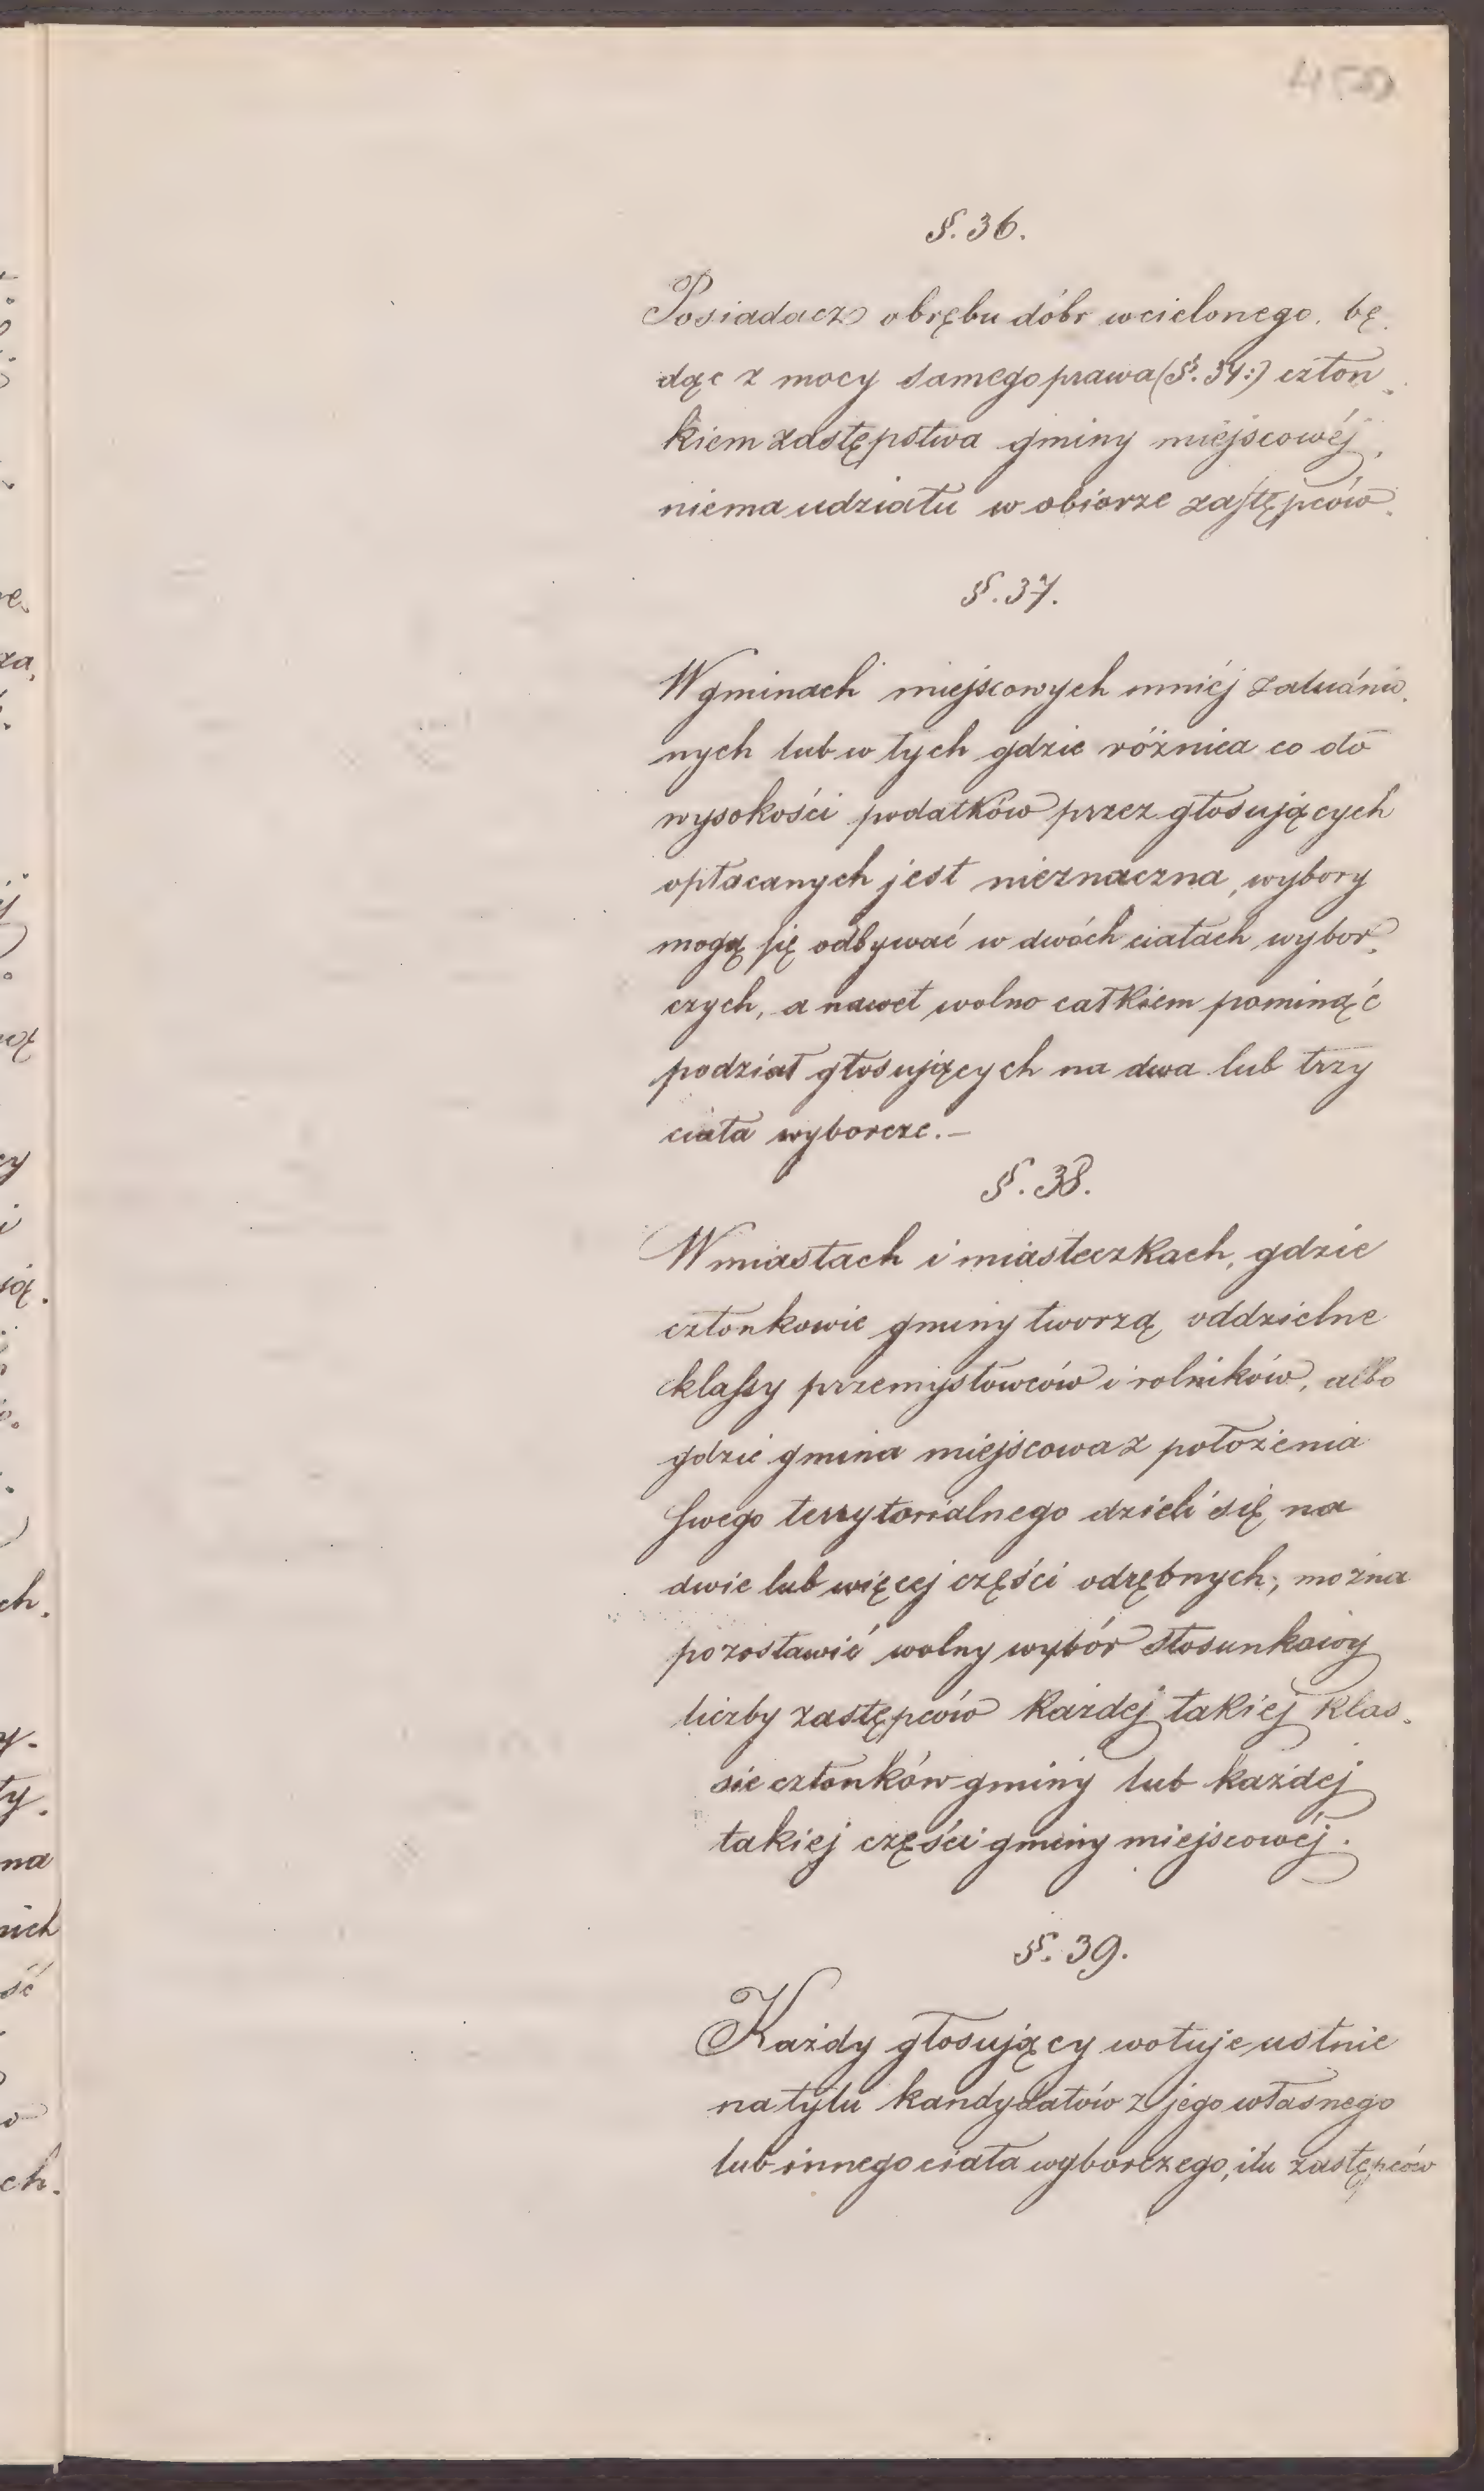 §. 36.
Posiadacz obrębu dóbr wcielonego, bę
dąc z mocy samego prawa (§. 34:) człon
kiem zastępstwa gminy miejscowéj,
niema udziału w obiorze zastępców.
§. 37.
W gminach miejscowych mniéj zaludnio
nych lub w tych gdzie różnica co do
wysokości podatków przez głosujących
opłacanych jest nieznaczna, wybory
mogą się odbywać w dwóch ciałach wybor
czych, a nawet wolno całkiem pominąć
podział głosujących na dwa lub trzy
ciała wyborcze. —
§. 38.
W miastach i miasteczkach, gdzie
członkowie gminy tworzą oddzielne
klassy przemysłowców i rolników, albo
gdzie gmina miejscowa z położenia
swego terrytorialnego dzieli się na
dwie lub więcej części odrębnych, można
pozostawić wolny wybór stosunkowy
liczby zastępców każdej takiej klas
sie członków gminy lub każdej
takiej części gminy miejscowéj.
§. 39.
Każdy głosujący wotuje ustnie
na tylu kandydatów z jego własnego
lub innego ciała wyborczego, ilu zastępców